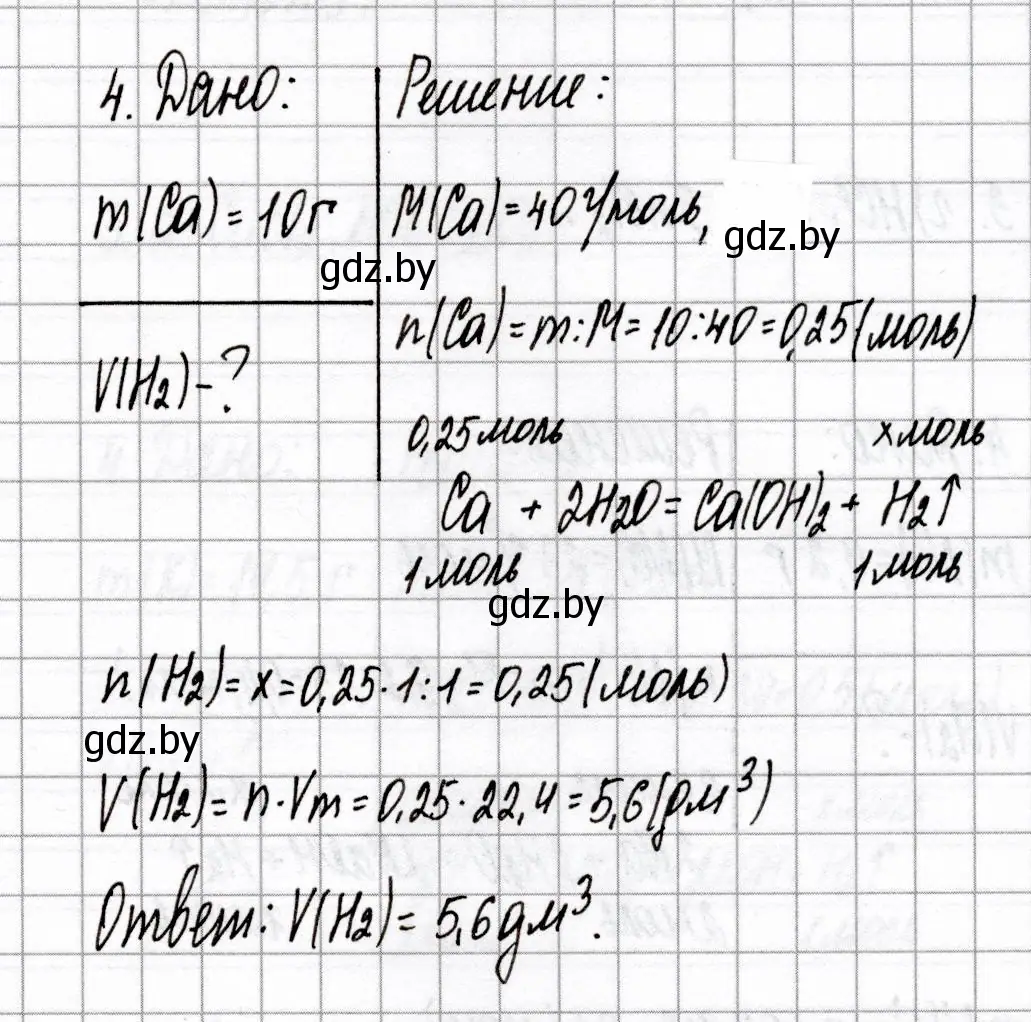 4. Дано:
m(Ca) = 10 г
V(H₂) - ?
Решение:
M(Ca) = 40 г/моль,
gdz.by
gdz.by
n(Ca) = m : M = 10 : 40 = 0,25 (моль)
0,25 моль x моль
Ca + 2H₂O = Ca(OH)₂ + H₂↑
1 моль 1 моль
gdz.by
n(H₂) = x = 0,25 · 1 : 1 = 0,25 (моль)
gdz.by
V(H₂) = n · Vm = 0,25 · 22,4 = 5,6 (дм³)
Ответ: V(H₂) = 5,6 дм³.